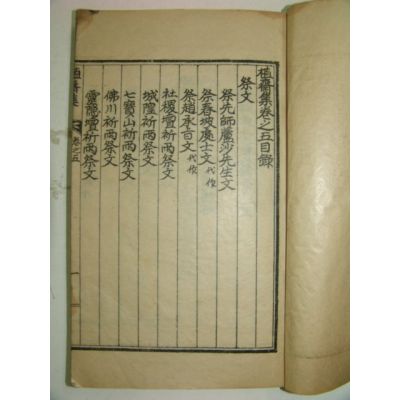 植齋集卷之五目錄
祭文
祭先師蘆沙先生文
祭春坡處士文代作
祭趙永百文代作
社稷壇祈雨祭文
城隍祈雨祭文
七寶山祈雨祭文
佛川祈雨祭文
靈龍壇祈雨祭文
植齋集 卷之五 一